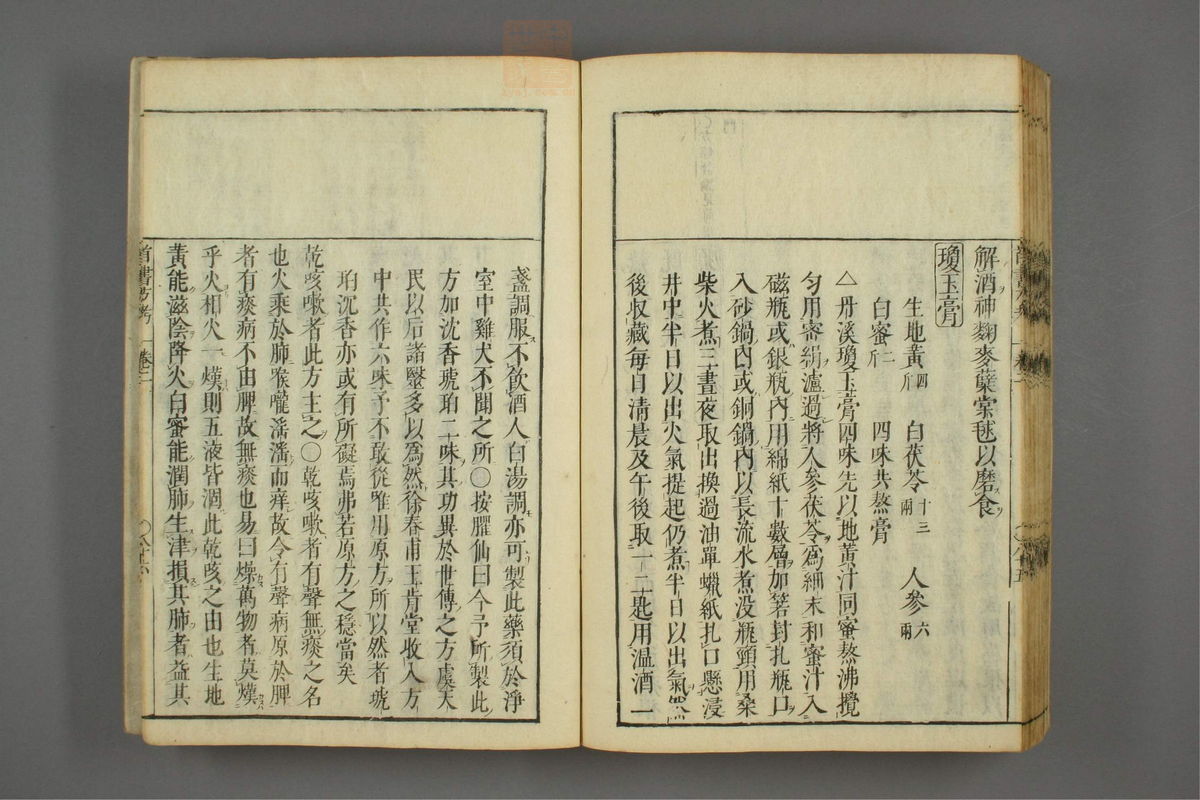 解酒神麴麥蘗棠毬以磨食
瓊玉膏
生地黃四斤 白茯苓十三兩 人參六兩
白蜜二斤 四味共熬膏
△丹溪瓊玉膏四味先以地黃汁同蜜熬沸攪
勻用密絹濾過將人參茯苓爲細末和蜜汁入
磁瓶或銀瓶內用綿紙十數層加箬封扎瓶口
入砂鍋內或銅鍋內以長流水煮没瓶頸用桑
柴火煮三晝夜取出換過油單蠟紙扎口懸浸
井中半日以出火氣提起仍煮半日以出水氣然
後收藏每日清晨及午後取一二匙用溫酒一
盞調服不飲酒人白湯調亦可製此藥須於淨
室中雞犬不聞之所〇按臞仙曰今予所製此
方加沈香琥珀二味其功異於世傳之方虞天
民以后諸毉多以爲然徐春甫王肯堂收入方
中共作六味予不敢從唯用原方所以然者琥
珀沉香亦或有所礙焉弗若原方之穩當矣
乾咳嗽者此方主之〇乾咳嗽者有聲無痰之名
也火乘於肺喉嚨淫淫而痒故令有聲病原於脾
者有痰病不由脾故無痰也易曰燥萬物者莫熯
乎火相火一熯則五液皆涸此乾咳之由也生地
黃能滋陰降火白蜜能潤肺生津損其肺者益其
首書方考 卷二 〇八十六